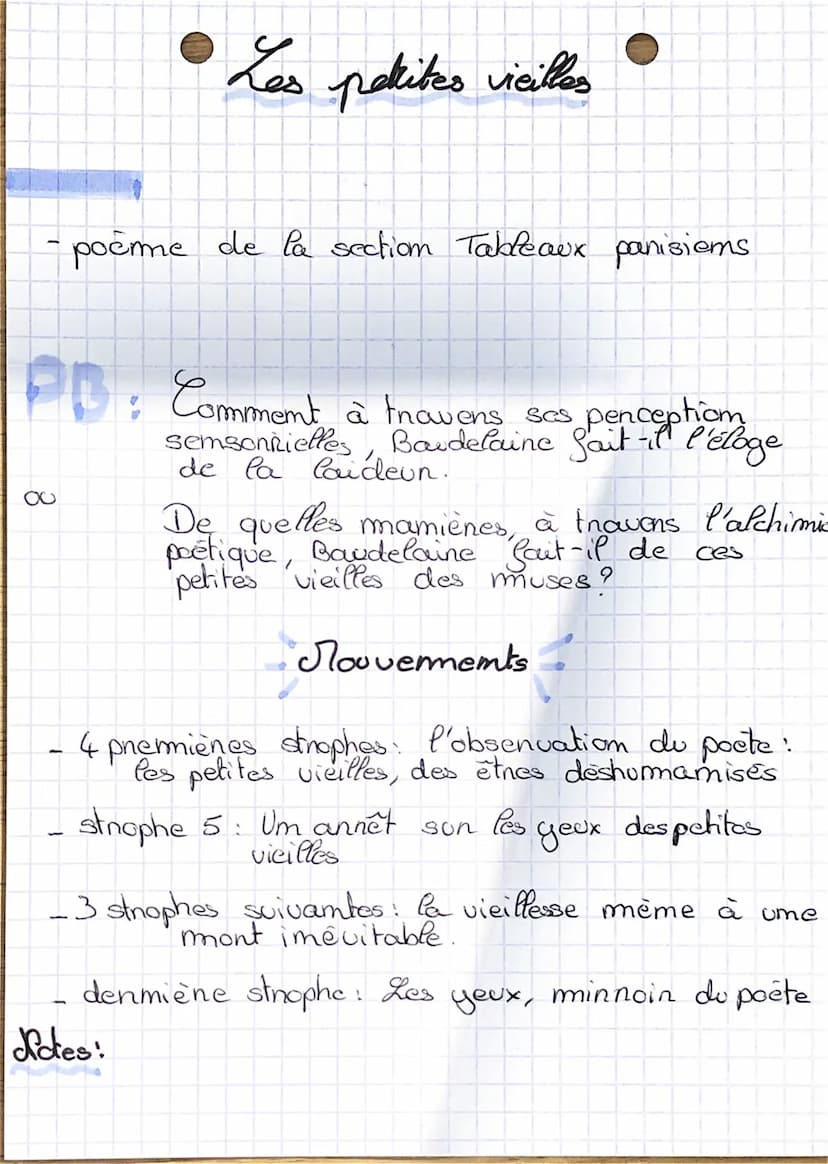 Les petites vieilles
- poème de la section Tableaux parisiens
PB : Comment à travers ses perception
sensorielles, Baudelaire fait-il l'éloge
de la laideur.
ou
De quelles manières, à travers l'alchimie
poétique, Baudelaire fait-il de ces
petites vieilles des muses ?
Mouvements
- 4 premières strophes : l'observation du poète :
les petites vieilles, des êtres déshumanisés
- strophe 5 : Un arrêt sur les yeux des petites
vieilles
- 3 strophes suivantes : la vieillesse mène à une
mort inévitable.
- dernière strophe : Les yeux, miroir du poète
Notes :